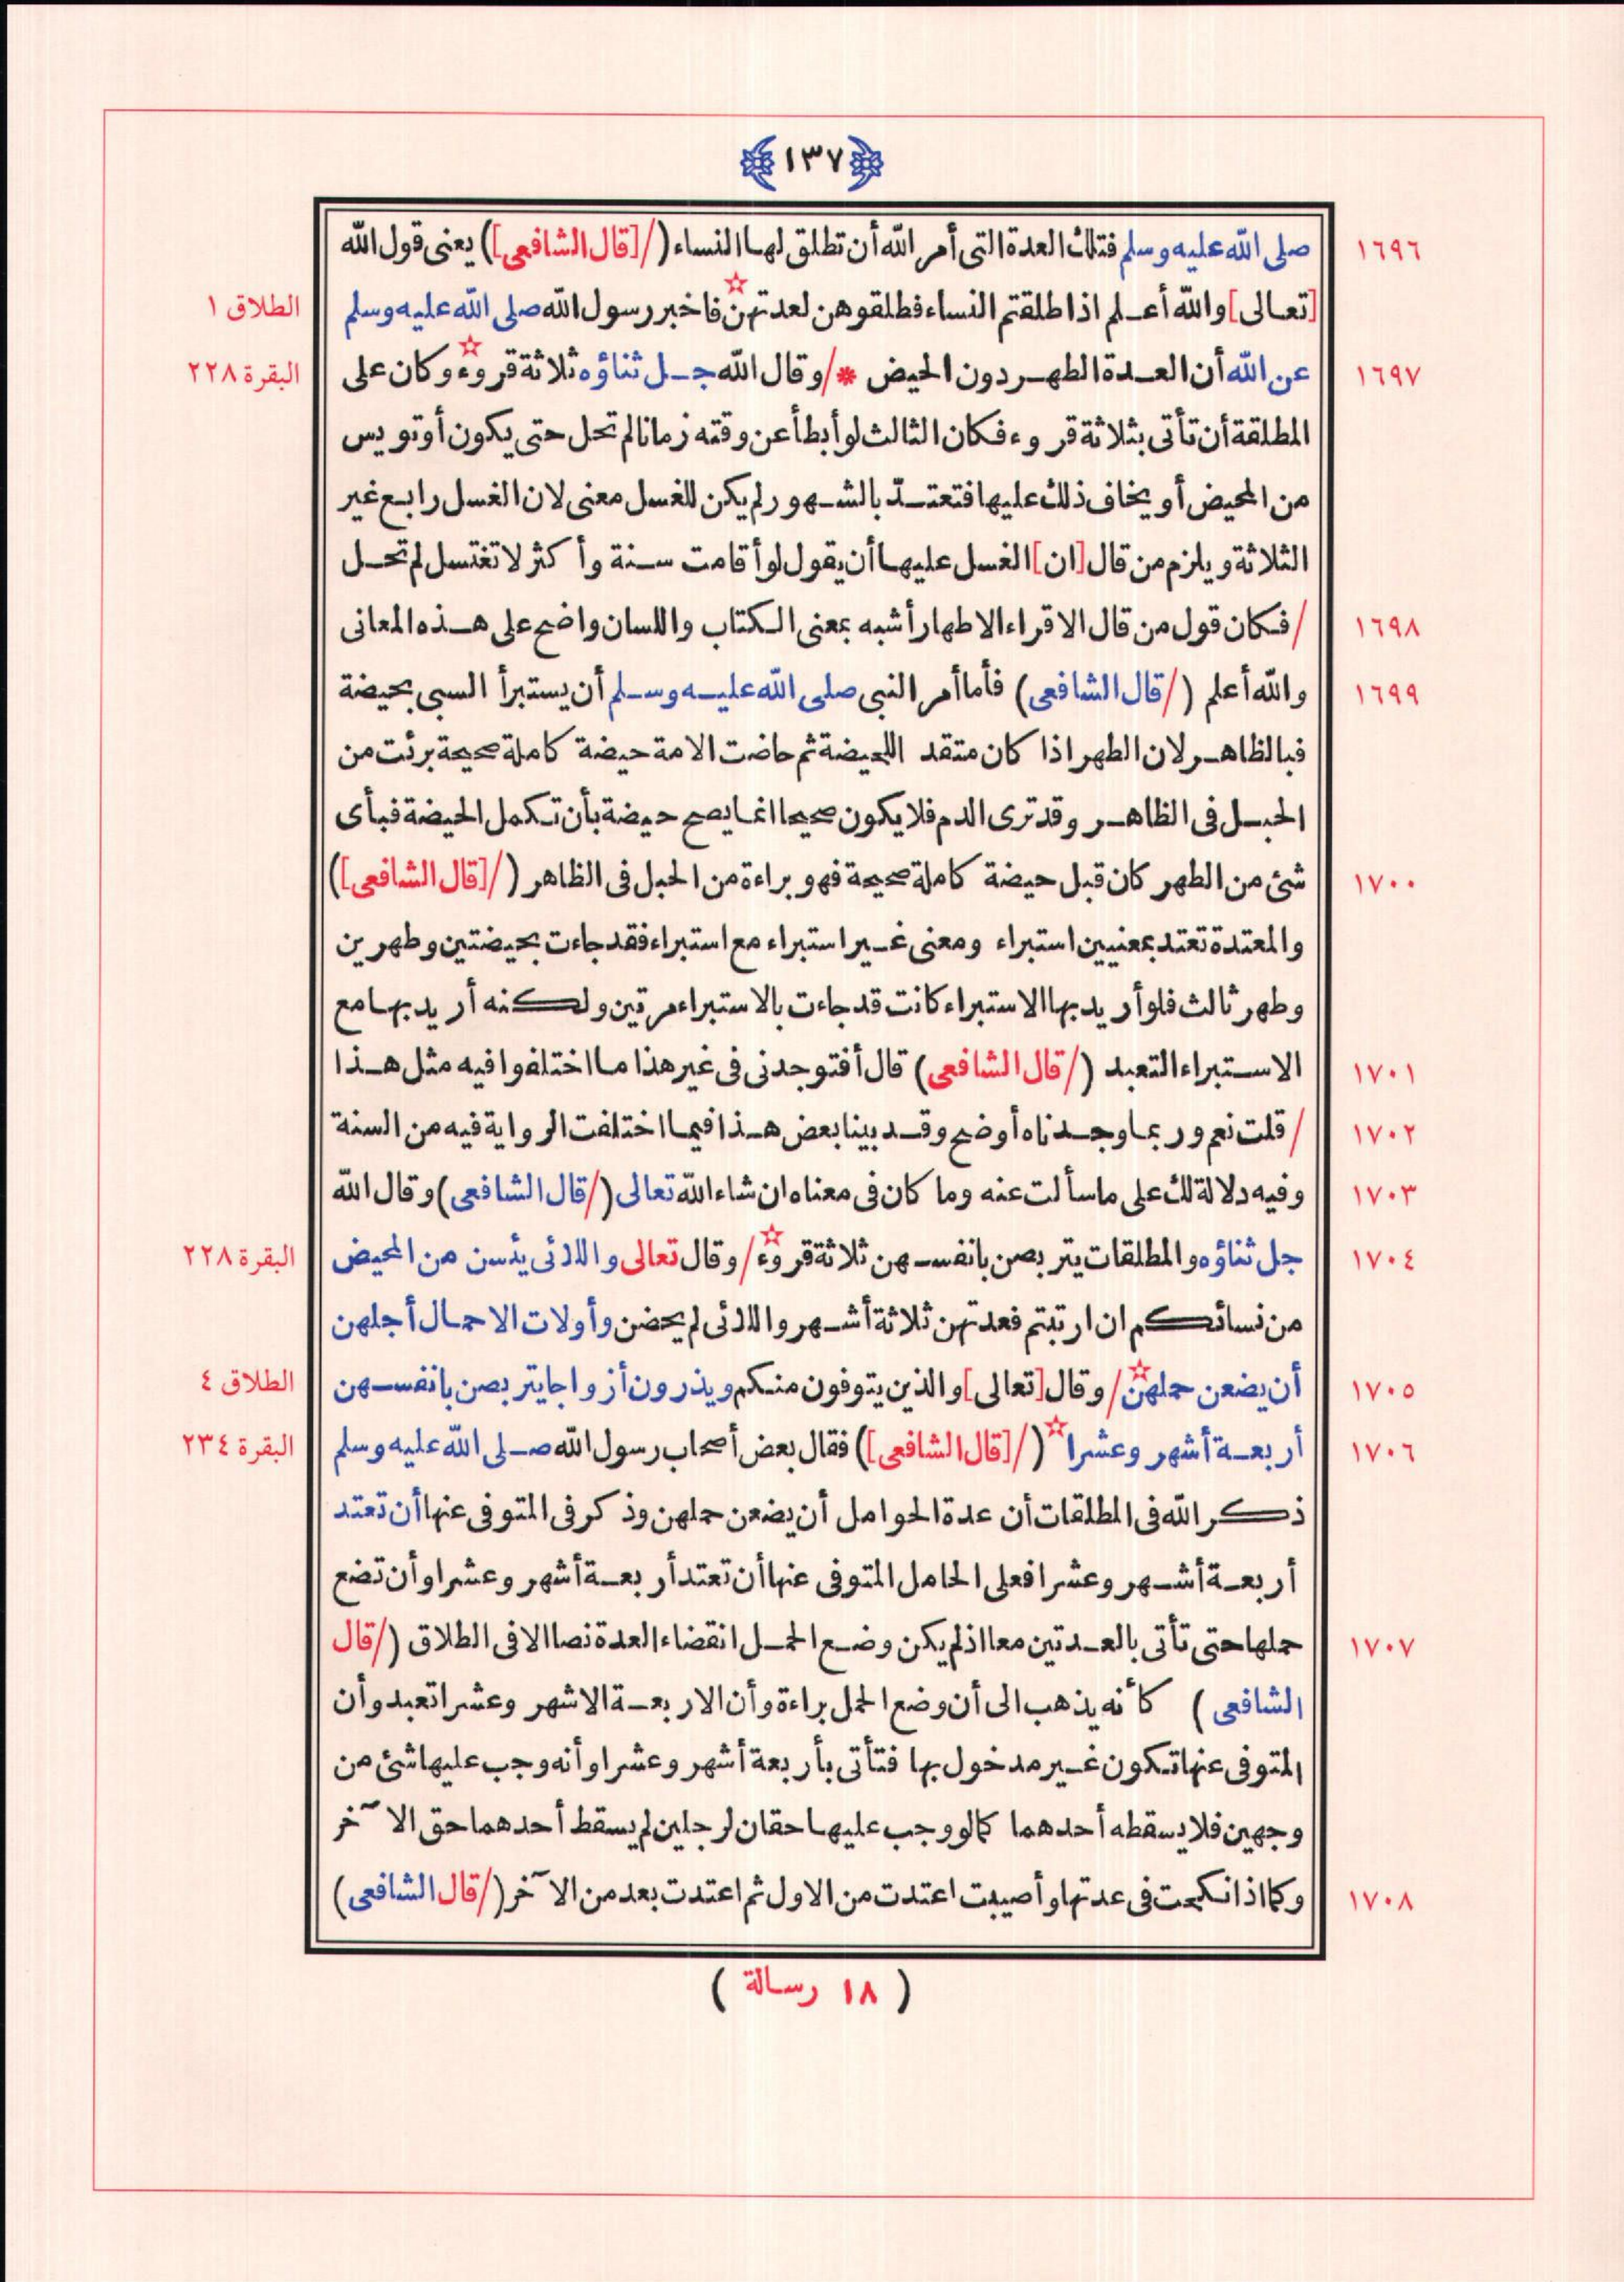 ١٣٧
١٦٩٦ صلى الله عليه وسلم فتلك العدة التى أمر الله أن تطلق لها النساء (/[قال الشافعى]) يعنى قول الله
[تعالى] والله أعلم اذا طلقتم النساء فطلقوهن لعدتهن☆ فاخبر رسول الله صلى الله عليه وسلم الطلاق ١
١٦٩٧ عن الله أن العدة الطهر دون الحيض * / وقال الله جل ثناؤه ثلاثة قروء☆ وكان على البقرة ٢٢٨
المطلقة أن تأتى بثلاثة قروء فكان الثالث لو أبطأ عن وقته زمانا لم تحل حتى يكون أوتويس
من المحيض أو يخاف ذلك عليها فتعتدّ بالشهور لم يكن للغسل معنى لان الغسل رابع غير
الثلاثة ويلزم من قال [ان] الغسل عليها أن يقول لو أقامت سنة وأكثر لا تغتسل لم تحل
١٦٩٨ / فكان قول من قال الاقراء الاطهار أشبه بمعنى الكتاب واللسان واضح على هذه المعانى
١٦٩٩ والله أعلم (/قال الشافعى) فأما أمر النبى صلى الله عليه وسلم أن يستبرأ السبى بحيضة
فبالظاهر لان الطهر اذا كان متقد اللحيضة ثم حاضت الامة حيضة كاملة صحيحة برئت من
الحبل فى الظاهر وقد ترى الدم فلا يكون صحيحا انما يصح حيضة بأن تكمل الحيضة فبأى
١٧٠٠ شئ من الطهر كان قبل حيضة كاملة صحيحة فهو براءة من الحبل فى الظاهر (/[قال الشافعى])
والمعتدة تعتد بمعنيين استبراء ومعنى غير استبراء مع استبراء فقد جاءت بحيضتين وطهرين
وطهر ثالث فلو أريد بها الاستبراء كانت قد جاءت بالاستبراء مرتين ولكنه أريد بها مع
١٧٠١ الاستبراء التعبد (/قال الشافعى) قال أفتوجدنى فى غير هذا ما اختلفوا فيه مثل هذا
١٧٠٢ / قلت نعم وربما وجدناه أوضح وقد بينا بعض هذا فيما اختلفت الرواية فيه من السنة
١٧٠٣ وفيه دلالة لك على ما سألت عنه وما كان فى معناه ان شاء الله تعالى (/قال الشافعى) وقال الله
١٧٠٤ جل ثناؤه والمطلقات يتربصن بانفسهن ثلاثة قروء☆ / وقال تعالى واللائى يئسن من المحيض البقرة ٢٢٨
من نسائكم ان ارتبتم فعدتهن ثلاثة أشهر واللائى لم يحضن وأولات الاحمال أجلهن
١٧٠٥ أن يضعن حملهن☆ / وقال [تعالى] والذين يتوفون منكم ويذرون أزواجا يتربصن بانفسهن الطلاق ٤
١٧٠٦ أربعة أشهر وعشرا☆ (/[قال الشافعى]) فقال بعض أصحاب رسول الله صلى الله عليه وسلم البقرة ٢٣٤
ذكر الله فى المطلقات أن عدة الحوامل أن يضعن حملهن وذكر فى المتوفى عنها أن تعتد
أربعة أشهر وعشرا فعلى الحامل المتوفى عنها أن تعتد أربعة أشهر وعشرا وأن تضع
١٧٠٧ حملها حتى تأتى بالعدتين معا اذ لم يكن وضع الحمل انقضاء العدة نصا الا فى الطلاق (/قال
الشافعى) كأنه يذهب الى أن وضع الحمل براءة وأن الاربعة الاشهر وعشرا تعبد وأن
المتوفى عنها تكون غير مدخول بها فتأتى بأربعة أشهر وعشرا وأنه وجب عليها شئ من
وجهين فلا يسقطه أحدهما كما لو وجب عليها حقان لرجلين لم يسقط أحدهما حق الآخر
١٧٠٨ وكما اذا نكحت فى عدتها وأصيبت اعتدت من الاول ثم اعتدت بعد من الآخر (/قال الشافعى)
( ١٨ رسالة )